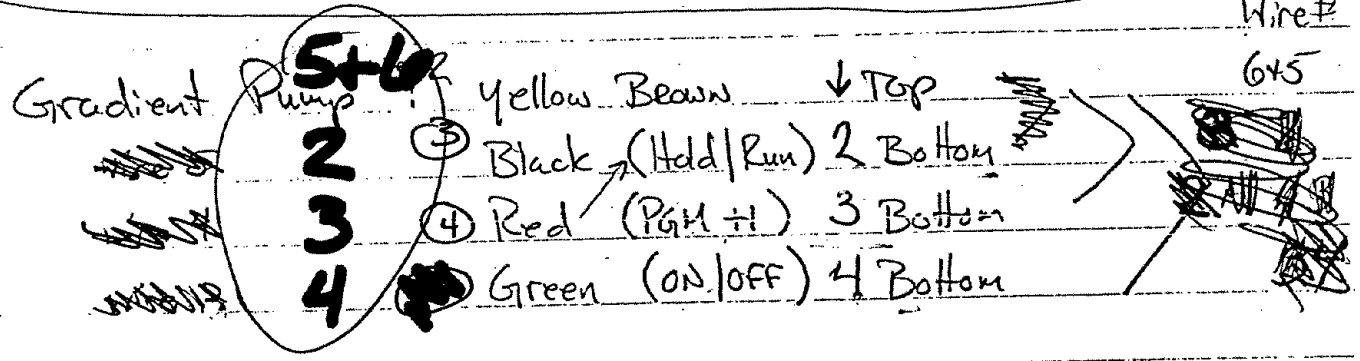 Wire #
5+6 6+5
Gradient Pump : Yellow Brown ↓ Top
2 3 Black (Hold/Run) 2 Bottom
3 4 Red (PGM #1) 3 Bottom
4 Green (ON/OFF) 4 Bottom